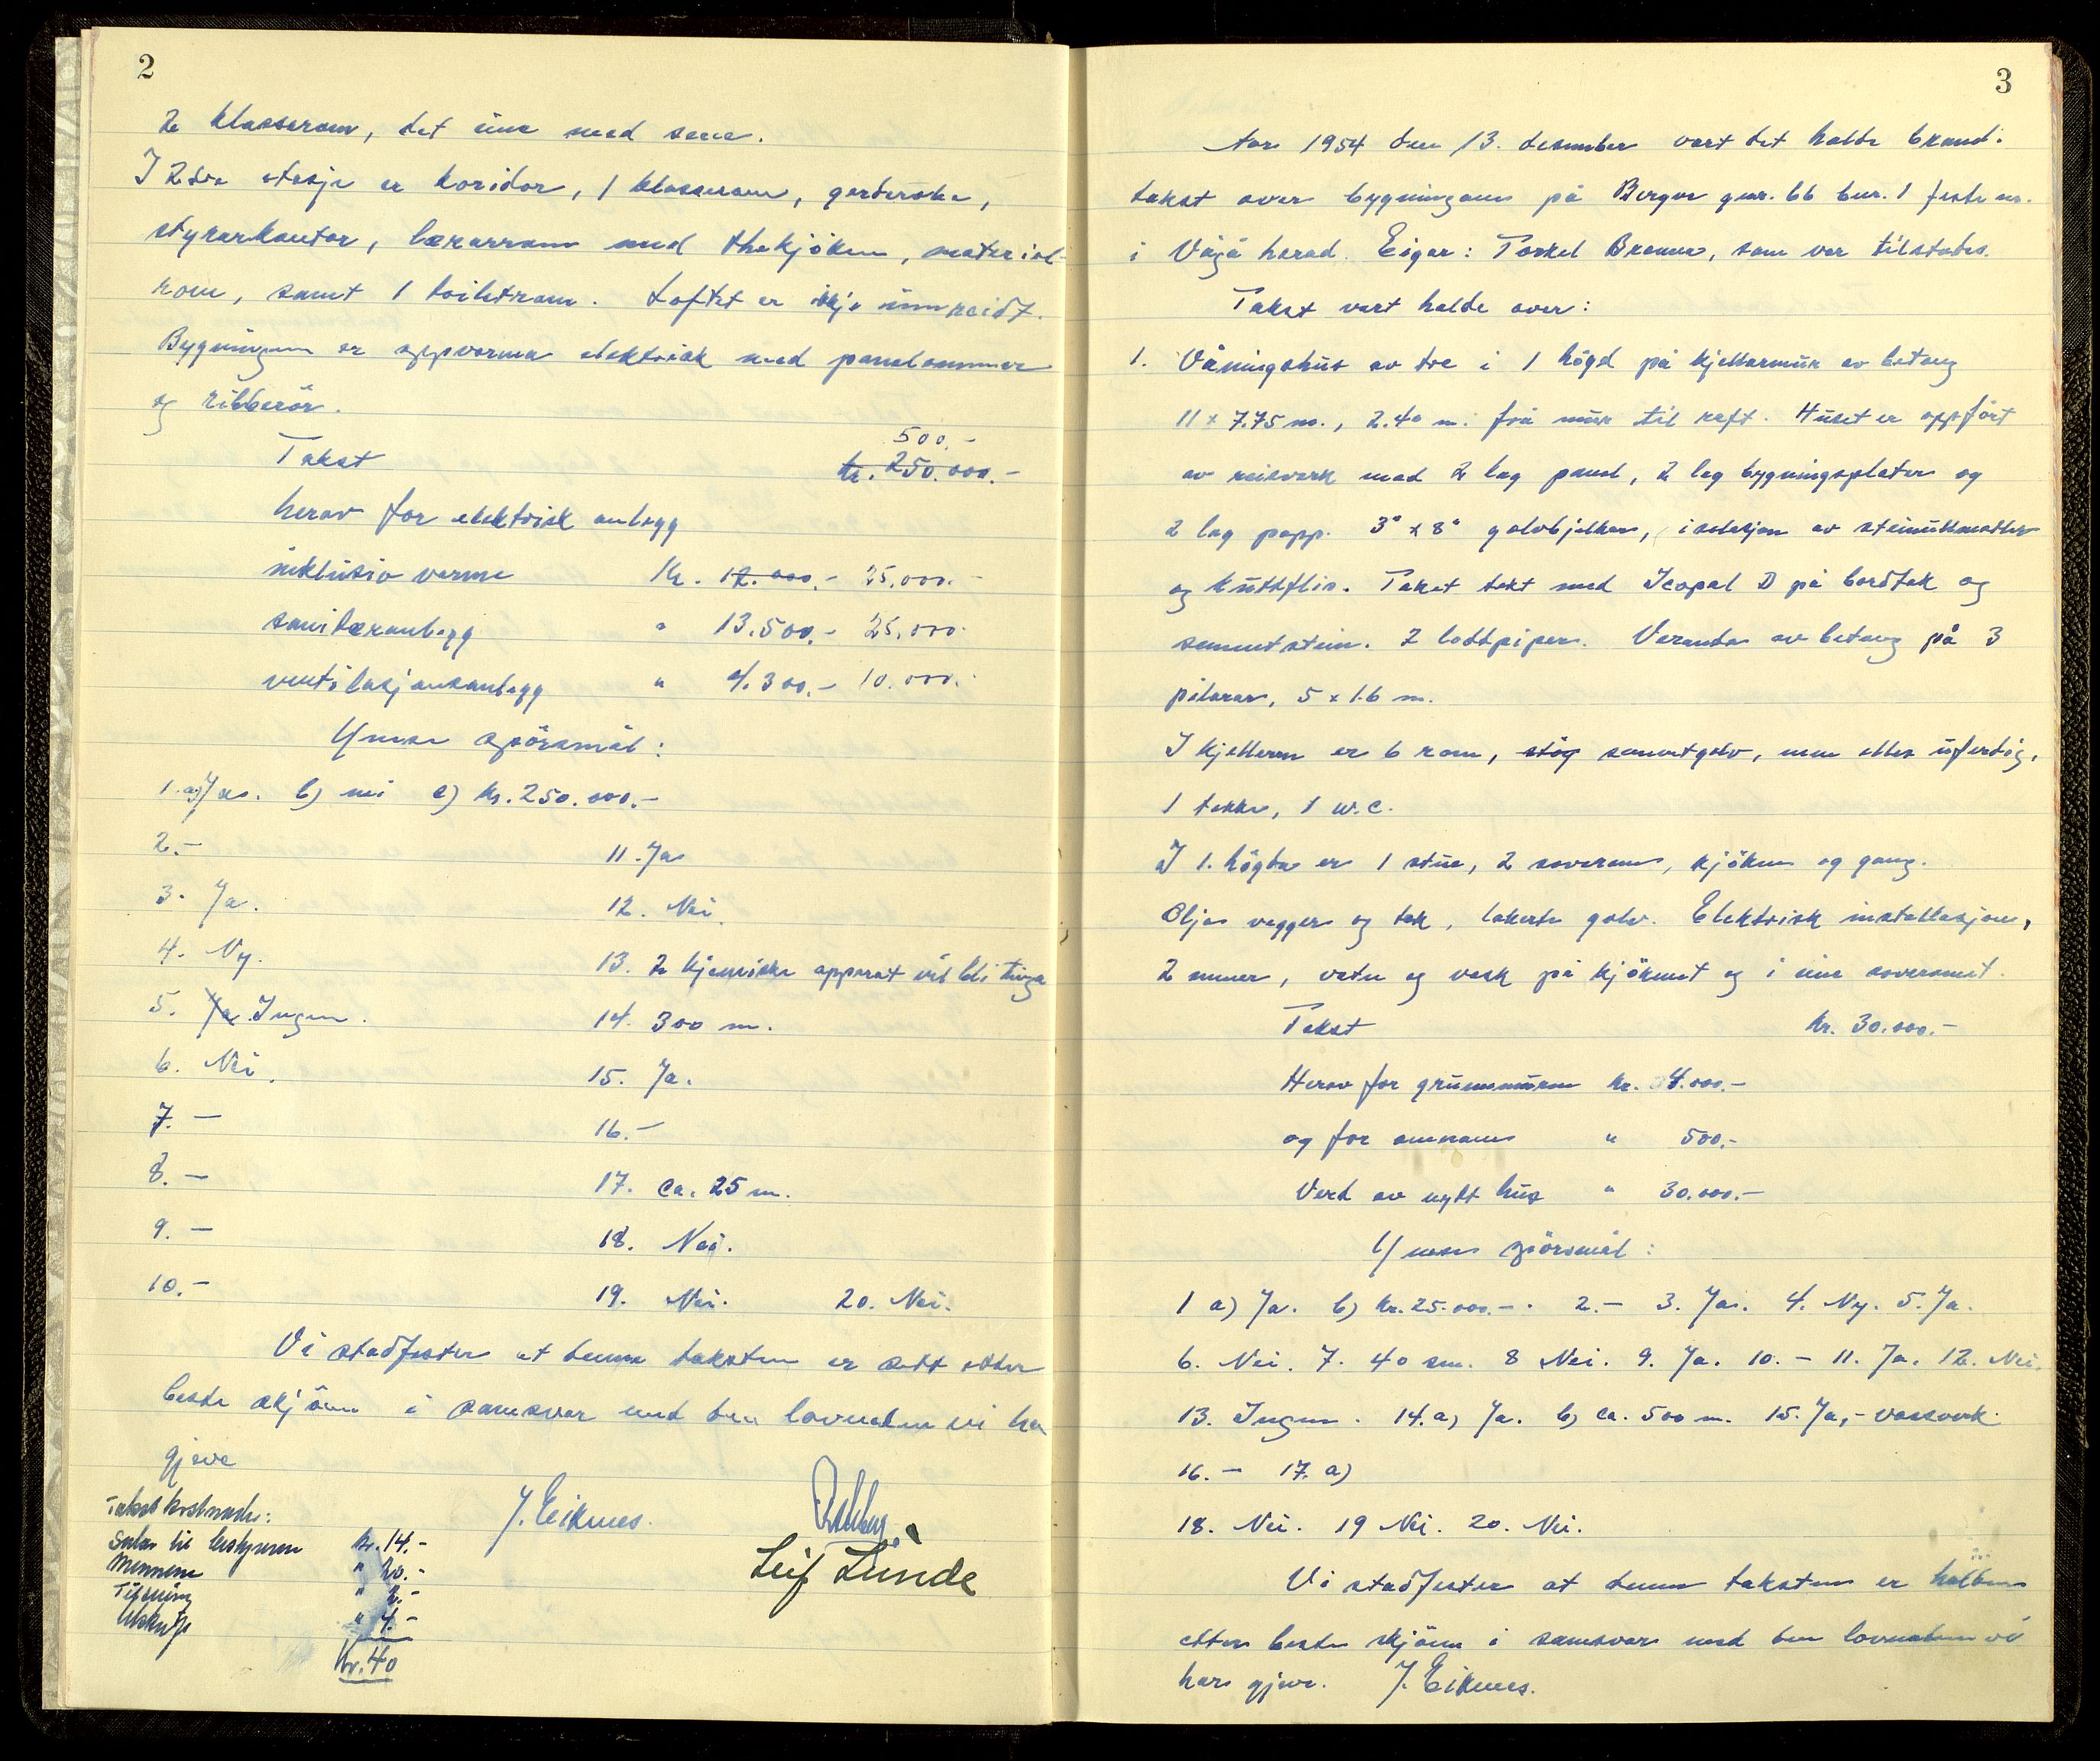 2
2 klasserom, det eine med scene.
I 2dre etasje er koridor, 1 klasserom, garderobe,
styrarkontor, lærarrom med thekjöken, material-
rom, samt 1 toiletrom. Loftet er ikkje innreidt.
Bygningen er oppvarma elektrisk med panelommer
og ribberör.
500.-
Takst kr. 250.000.-
herav for elektrisk anlegg
inklusiv varme Kr. 12.000.- 25.000.-
sanitæranlegg " 13.500.- 25.000.-
ventilasjonsanlegg " 4.300.- 10.000.-
Ymse spörsmål:
1. a) Ja. b) nei c) kr. 250.000.-
2.- 11. Ja
3. Ja. 12. Nei.
4. Ny. 13. 2 kjemiske apparat vil bli
5. Ja Ingen. 14. 300 m.
6. Nei. 15. Ja.
7. - 16.-
8. - 17. Ca. 25 m.
9. - 18. Nei.
10.- 19. Nei. 20. Nei.
Vi stadfester at denne taksten er sett etter
beste skjönn i samsvar med den lovnaden vi ha
gjeve
Takstkostnader:
J. Eiknes.
Leif Lunde
Salær til bestyreren kr. 14.-
Mennene " 20.-
" 2.-
Utskrift " 4.-
Kr. 40
3
Aar 1954 den 13. desember vart det halde brand-
takst over bygningane på Bergve gnr. 66 bnr. 1 feste nr.
i Vågå herad. Eigar: Torkel, som var tilstades.
Takst vart halde over:
1. Våningshus av tre i 1 högd på kjellarmur av betong
11 x 7.75 m., 2.40 m. frå mur til raft. Huset er oppfört
av reisverk med 2 lag panel, 2 lag bygningsplater og
2 lag papp. 3" x 8" golvbjelker, isolasjon av steinullmatter
og kutterflis. Taket tekt med Icopal D på bordtak og
sementstein. 2 loddpiper. Veranda av betong på 3
pilarar, 5 x 1.6 m.
I kjellaren er 6 rom, støy sementgolv, men elles uferdig,
1 tekke, 1 w.c.
I 1. högda er 1 stue, 2 soverom, kjöken og gang.
Olja vegger og tak, lakerte golv. Elektrisk installasjon,
2 murer, vatn og vask på kjökenet og i eine soverommet.
Takst kr. 30.000.-
Herav for grunnmuren kr. 4.000.-
og for omnane " 500.-
Verd av nytt hus " 30.000.-
Ymse spörsmål:
1 a) Ja. b) kr. 25.000.-. 2.- 3. Ja. 4. Ny. 5. Ja.
6. Nei. 7. 40 sm. 8 Nei. 9. Ja. 10. - 11. Ja. 12. Nei.
13. Ingen. 14. a) Ja. b) ca. 500 m. 15. Ja, - vassverk
16. - 17. a)
18. Nei. 19 Nei. 20. Nei.
Vi stadfester at denne taksten er halden
etter beste skjönn i samsvar med den lovnaden vi
har gjeve. J. Eiknes.